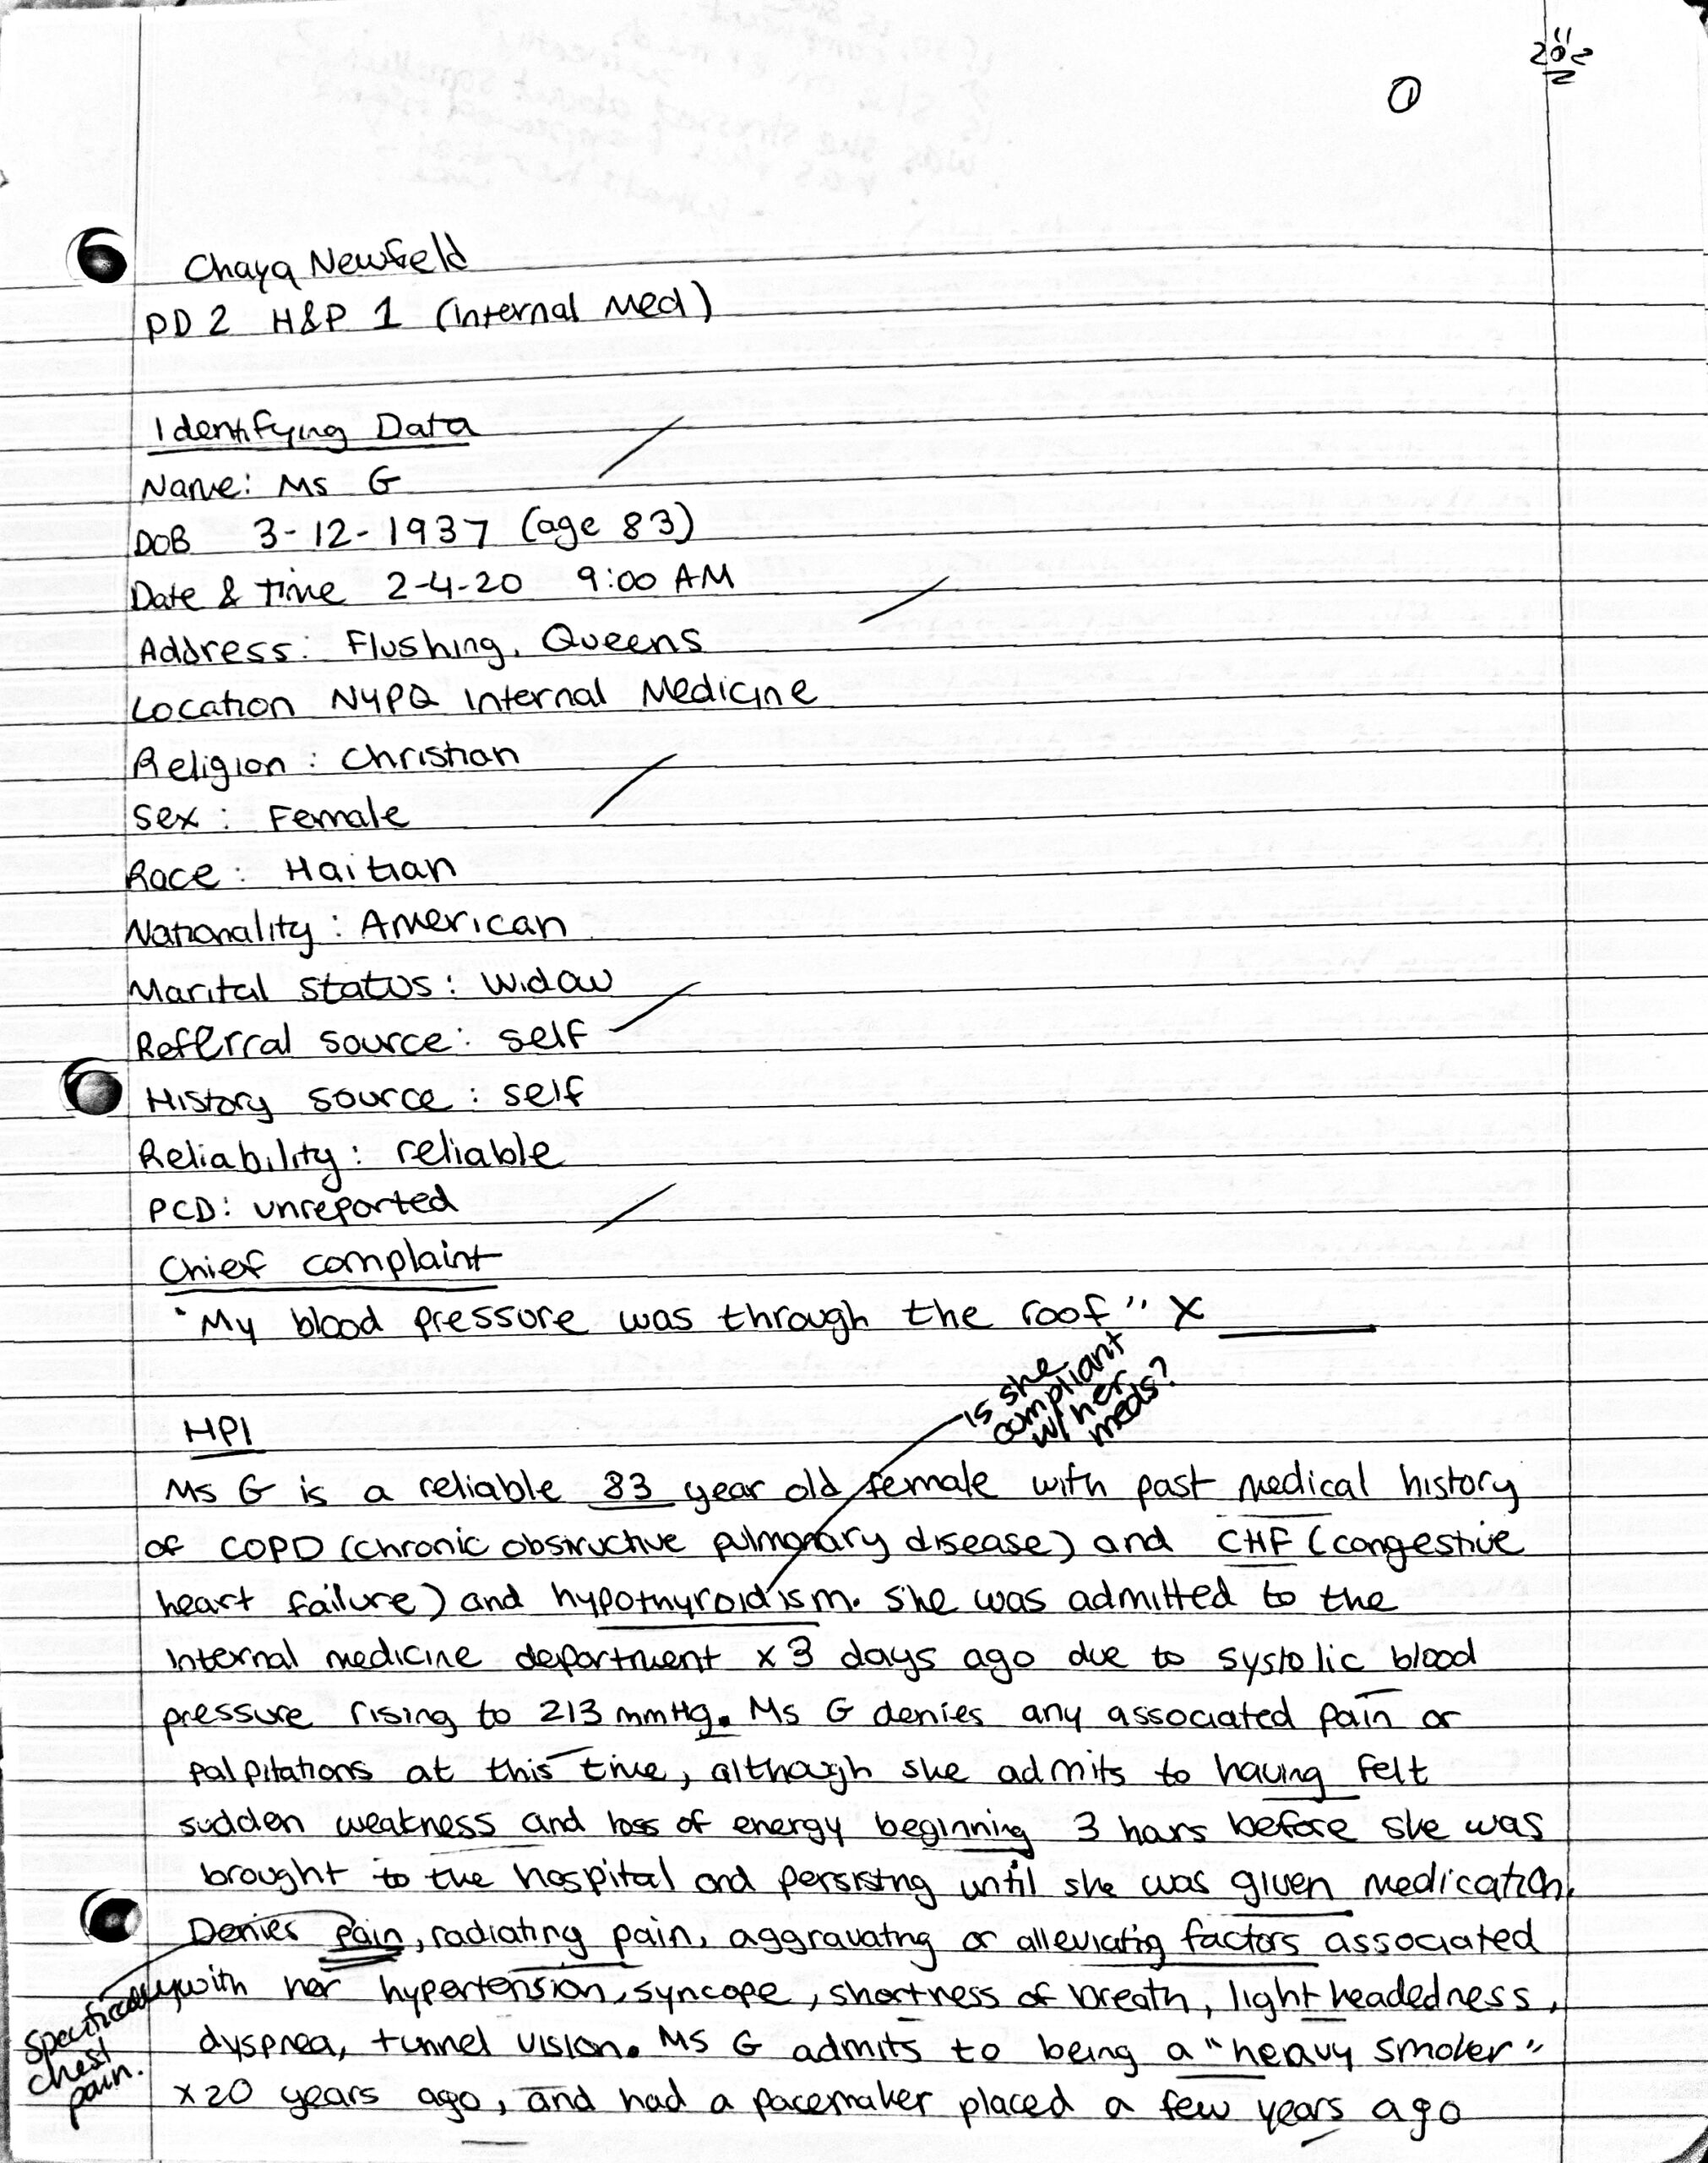 ①
Chaya Newfield
PD 2 H&P 1 (Internal Med)
Identifying Data
Name: Ms G
DOB 3-12-1937 (age 83)
Date & time 2-4-20 9:00 AM
Address: Flushing, Queens
Location NYPQ Internal Medicine
Religion: Christian
Sex: Female
Race: Haitian
Nationality: American
Marital status: Widow
Referral source: self
History source: self
Reliability: reliable
PCD: unreported
Chief complaint
"My blood pressure was through the roof" X ____
is she
compliant
w/ her
meds?
HPI
Ms G is a reliable 83 year old female with past medical history
of COPD (chronic obstructive pulmonary disease) and CHF (congestive
heart failure) and hypothyroidism. She was admitted to the
internal medicine department x 3 days ago due to systolic blood
pressure rising to 213 mmHg. Ms G denies any associated pain or
palpitations at this time, although she admits to having felt
sudden weakness and loss of energy beginning 3 hours before she was
brought to the hospital and persisting until she was given medication.
Denies pain, radiating pain, aggravating or alleviating factors associated
with her hypertension, syncope, shortness of breath, lightheadedness,
dyspnea, tunnel vision. Ms G admits to being a "heavy smoker"
x 20 years ago, and had a pacemaker placed a few years ago
specifically
chest
pain.